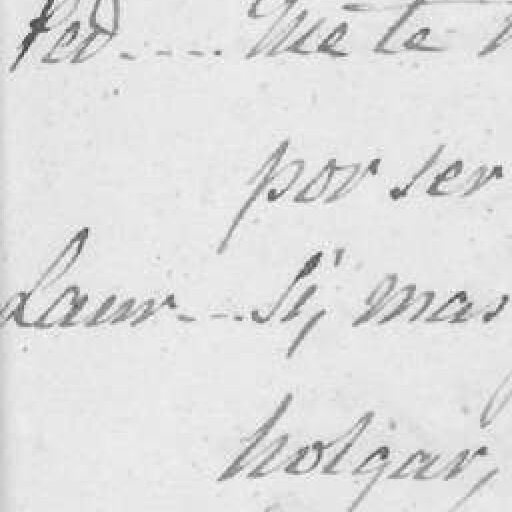 Ped.... Me te
por ser
Laur... Si, mas
holgar,